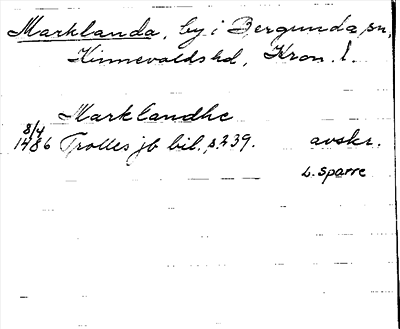 Marklanda, by i Bergunda sn,
Kinnevalds hd, Kron. l.
Marklandhe
8/4
1486 Trolles jb bil. s. 239. avskr.
L. Sparre